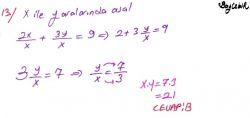 13) x ile y aralarında asal
2x/x + 3y/x = 9 ⇒ 2 + 3 y/x = 9
3 y/x = 7 ⇒ y/x = 7/3
x.y = 7.3
= 21
CEVAP: B